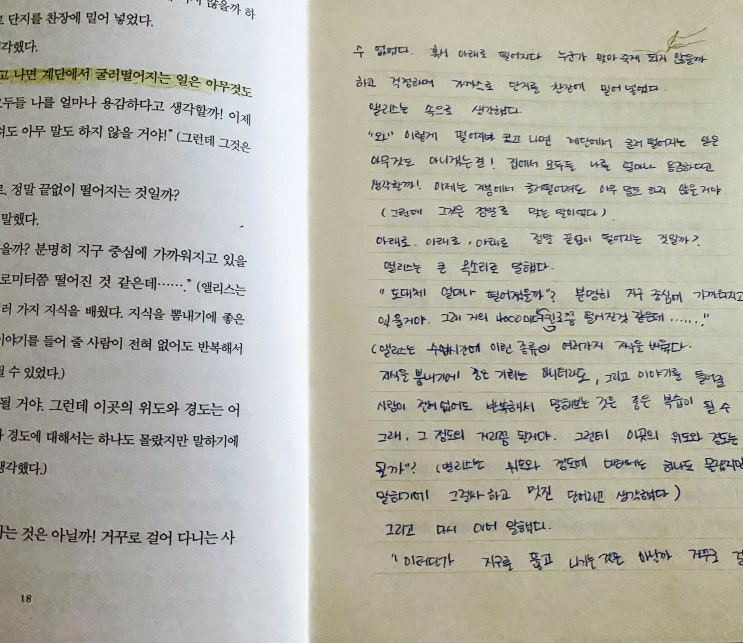 않을까 하
단지를 찬장에 밀어 넣었다.
각했다.
고 나면 계단에서 굴러떨어지는 일은 아무것도
모두들 나를 얼마나 용감하다고 생각할까! 이제
져도 아무 말도 하지 않을 거야!” (그런데 그것은
정말 끝없이 떨어지는 것일까?
말했다.
을까? 분명히 지구 중심에 가까워지고 있을
로미터쯤 떨어진 것 같은데…….” (앨리스는
러 가지 지식을 배웠다. 지식을 뽐내기에 좋은
이야기를 들어 줄 사람이 전혀 없어도 반복해서
될 수 있었다.)
될 거야. 그런데 이곳의 위도와 경도는 어
경도에 대해서는 하나도 몰랐지만 말하기에
생각했다.)
하는 것은 아닐까! 거꾸로 걸어 다니는 사
18
수 없었다. 혹시 아래로 떨어지다 누군가 맞아 죽게 되지 않을까
하고 걱정하며 단지를 찬장에 밀어 넣었다.
앨리스는 속으로 생각했다.
"와" 이렇게 떨어지고 나면 계단에서 굴러 떨어지는 일은
아무것도 아니겠는걸! 집에서 모두들 나를 얼마나 용감하다고
생각할까! 이제는 지붕에서 굴러떨어져도 아무 말도 하지 않을거야
(그런데 그것은 정말로 맞는 말이었다)
아래로. 아래로. 아래로 정말 끝없이 떨어지는 것일까?
앨리스는 큰 목소리로 말했다.
"도대체 얼마나 떨어졌을까"? 분명히 지구 중심에 가까워지고
있을거야. 그래 거의 떨어진것 같은데 ......."
(앨리스는 수업시간에 이런 종류의 여러가지 지식을 배웠다.
지식을 뽐내기에 좋은 기회는 아니더라도, 그리고 이야기를 들어줄
사람이 전혀없어도 반복해서 말해보는 것은 좋은 복습이 될 수
그래, 그 정도의 거리쯤 될거야. 그런데 이곳의 위도와 경도는
될까"? (앨리스는 위도와 경도에 대해서는 하나도 몰랐지만
말하기에 그럴싸하고 멋진 단어라고 생각했다)
그리고 다시 이어 말했다.
"이러다가 지구를 뚫고 나가는 것은 아닐까 거꾸로 걸